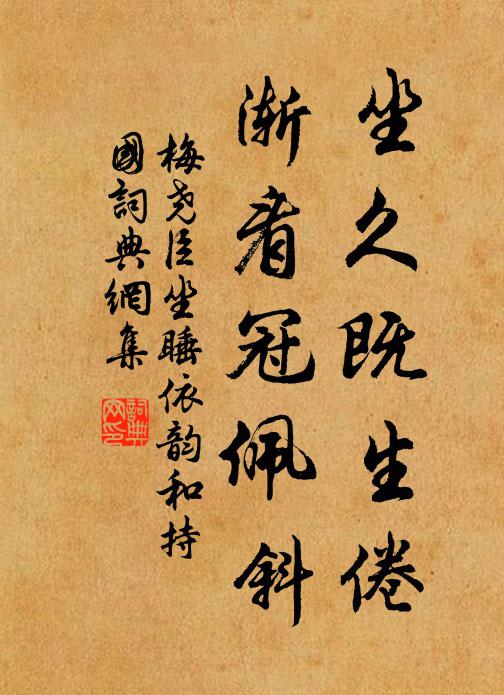 坐久既生倦
渐看冠佩斜
梅尧臣坐睡依韵和持
國詞典網集
詞典
网印